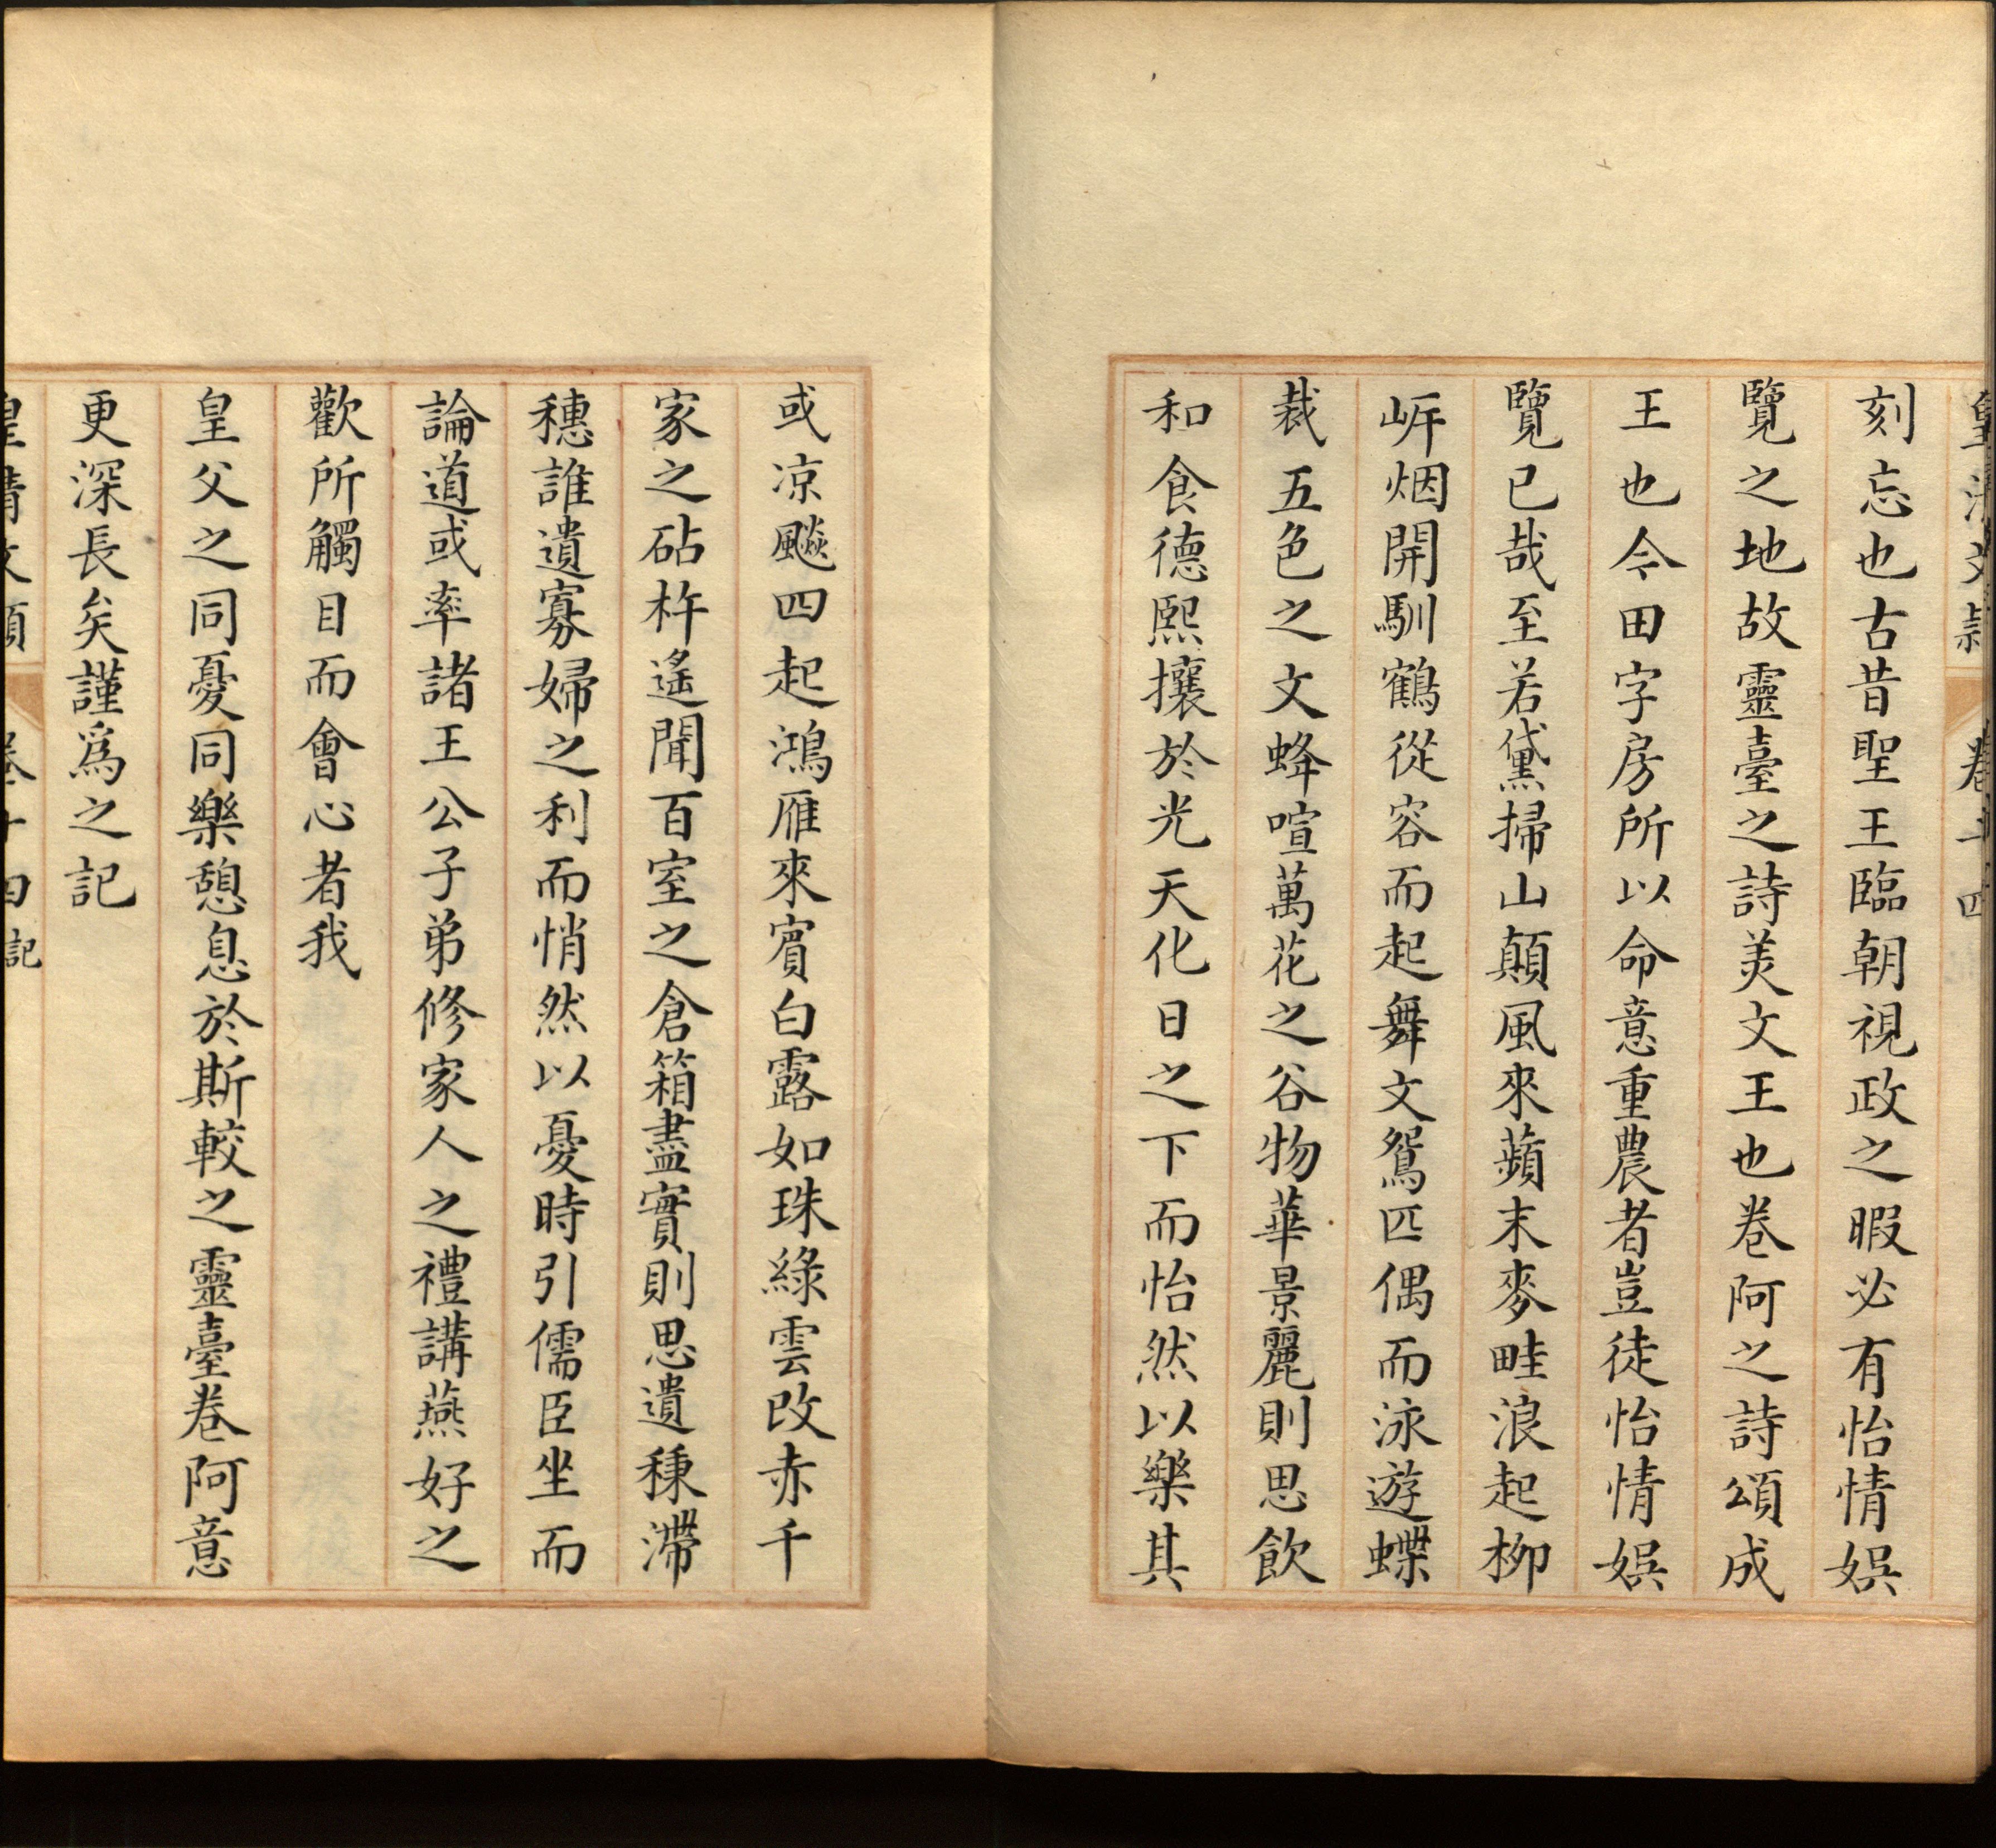 皇清文穎 卷十四
刻忘也古昔聖王臨朝視政之暇必有怡情娛
覽之地故靈臺之詩美文王也卷阿之詩頌成
王也今田字房所以命意重農者豈徒怡情娛
覽已哉至若黛掃山顛風來蘋末麥畦浪起柳
㟁烟開馴鶴從容而起舞文鴛匹偶而泳遊蝶
裁五色之文蜂喧萬花之谷物華景麗則思飲
和食德熙攘於光天化日之下而怡然以樂其
或凉飈四起鴻雁來賓白露如珠綠雲改赤千
家之砧杵遙聞百室之倉箱盡實則思遺秉滯
穗誰遺寡婦之利而悄然以憂時引儒臣坐而
論道或率諸王公子弟修家人之禮講燕好之
歡所觸目而會心者我
皇父之同憂同樂憩息於斯較之靈臺卷阿意
更深長矣謹爲之記
皇清文穎 卷十四 記